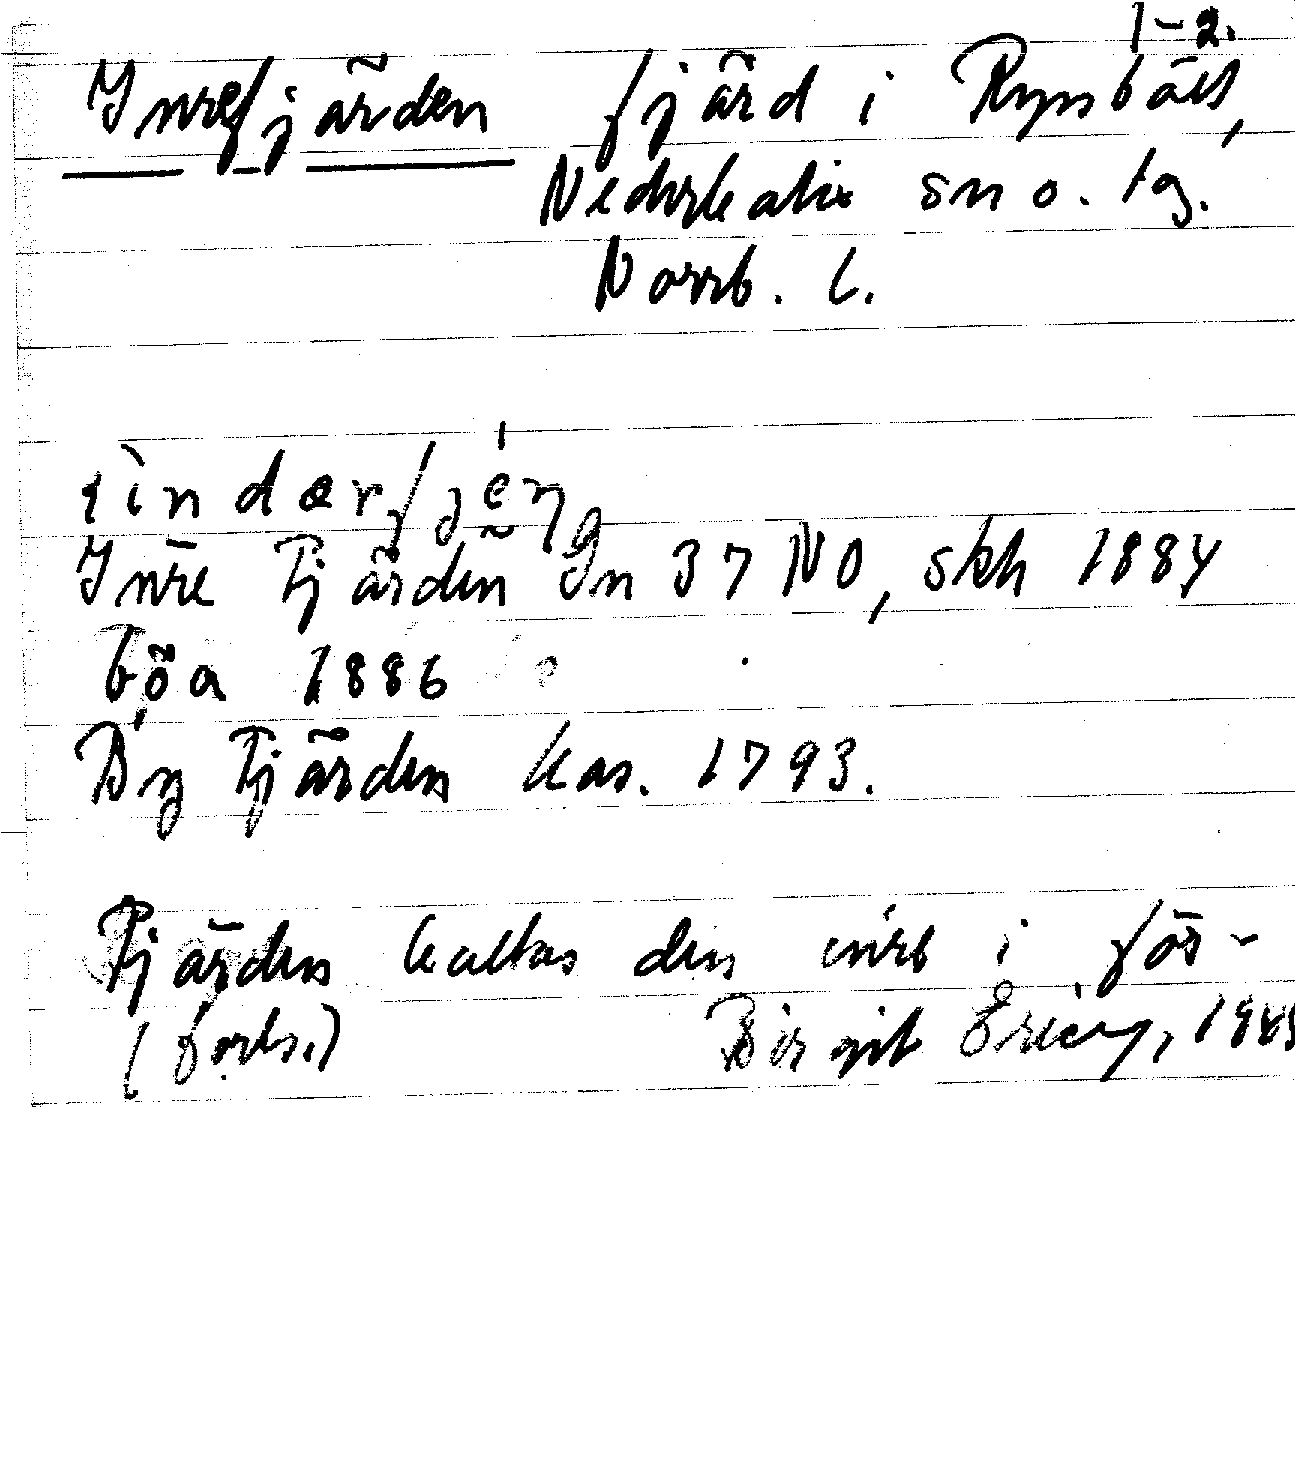 1-2.
Inrefjärden fjärd i Rynbäck,
Nederkalix sn o. tg.
Norrb. l.
Inre Fjärden Gn 37 NO, skh 1884
1886
By Fjärden kas. 1793.
Fjärden kallas den inre i för-
(forts.) Birgit Ericy, 198